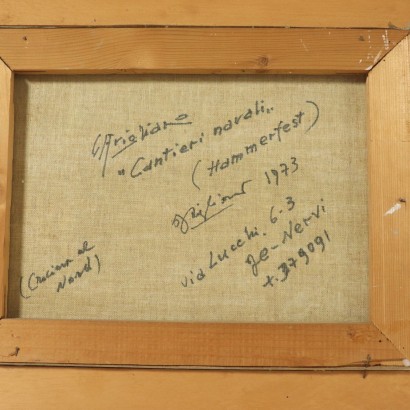 G Frigliano
"Cantieri navali"
(Hammerfest)
1973
via Lucchi. 6-3
Ge-Nervi
t. 379091
(Crociera al
Nord)